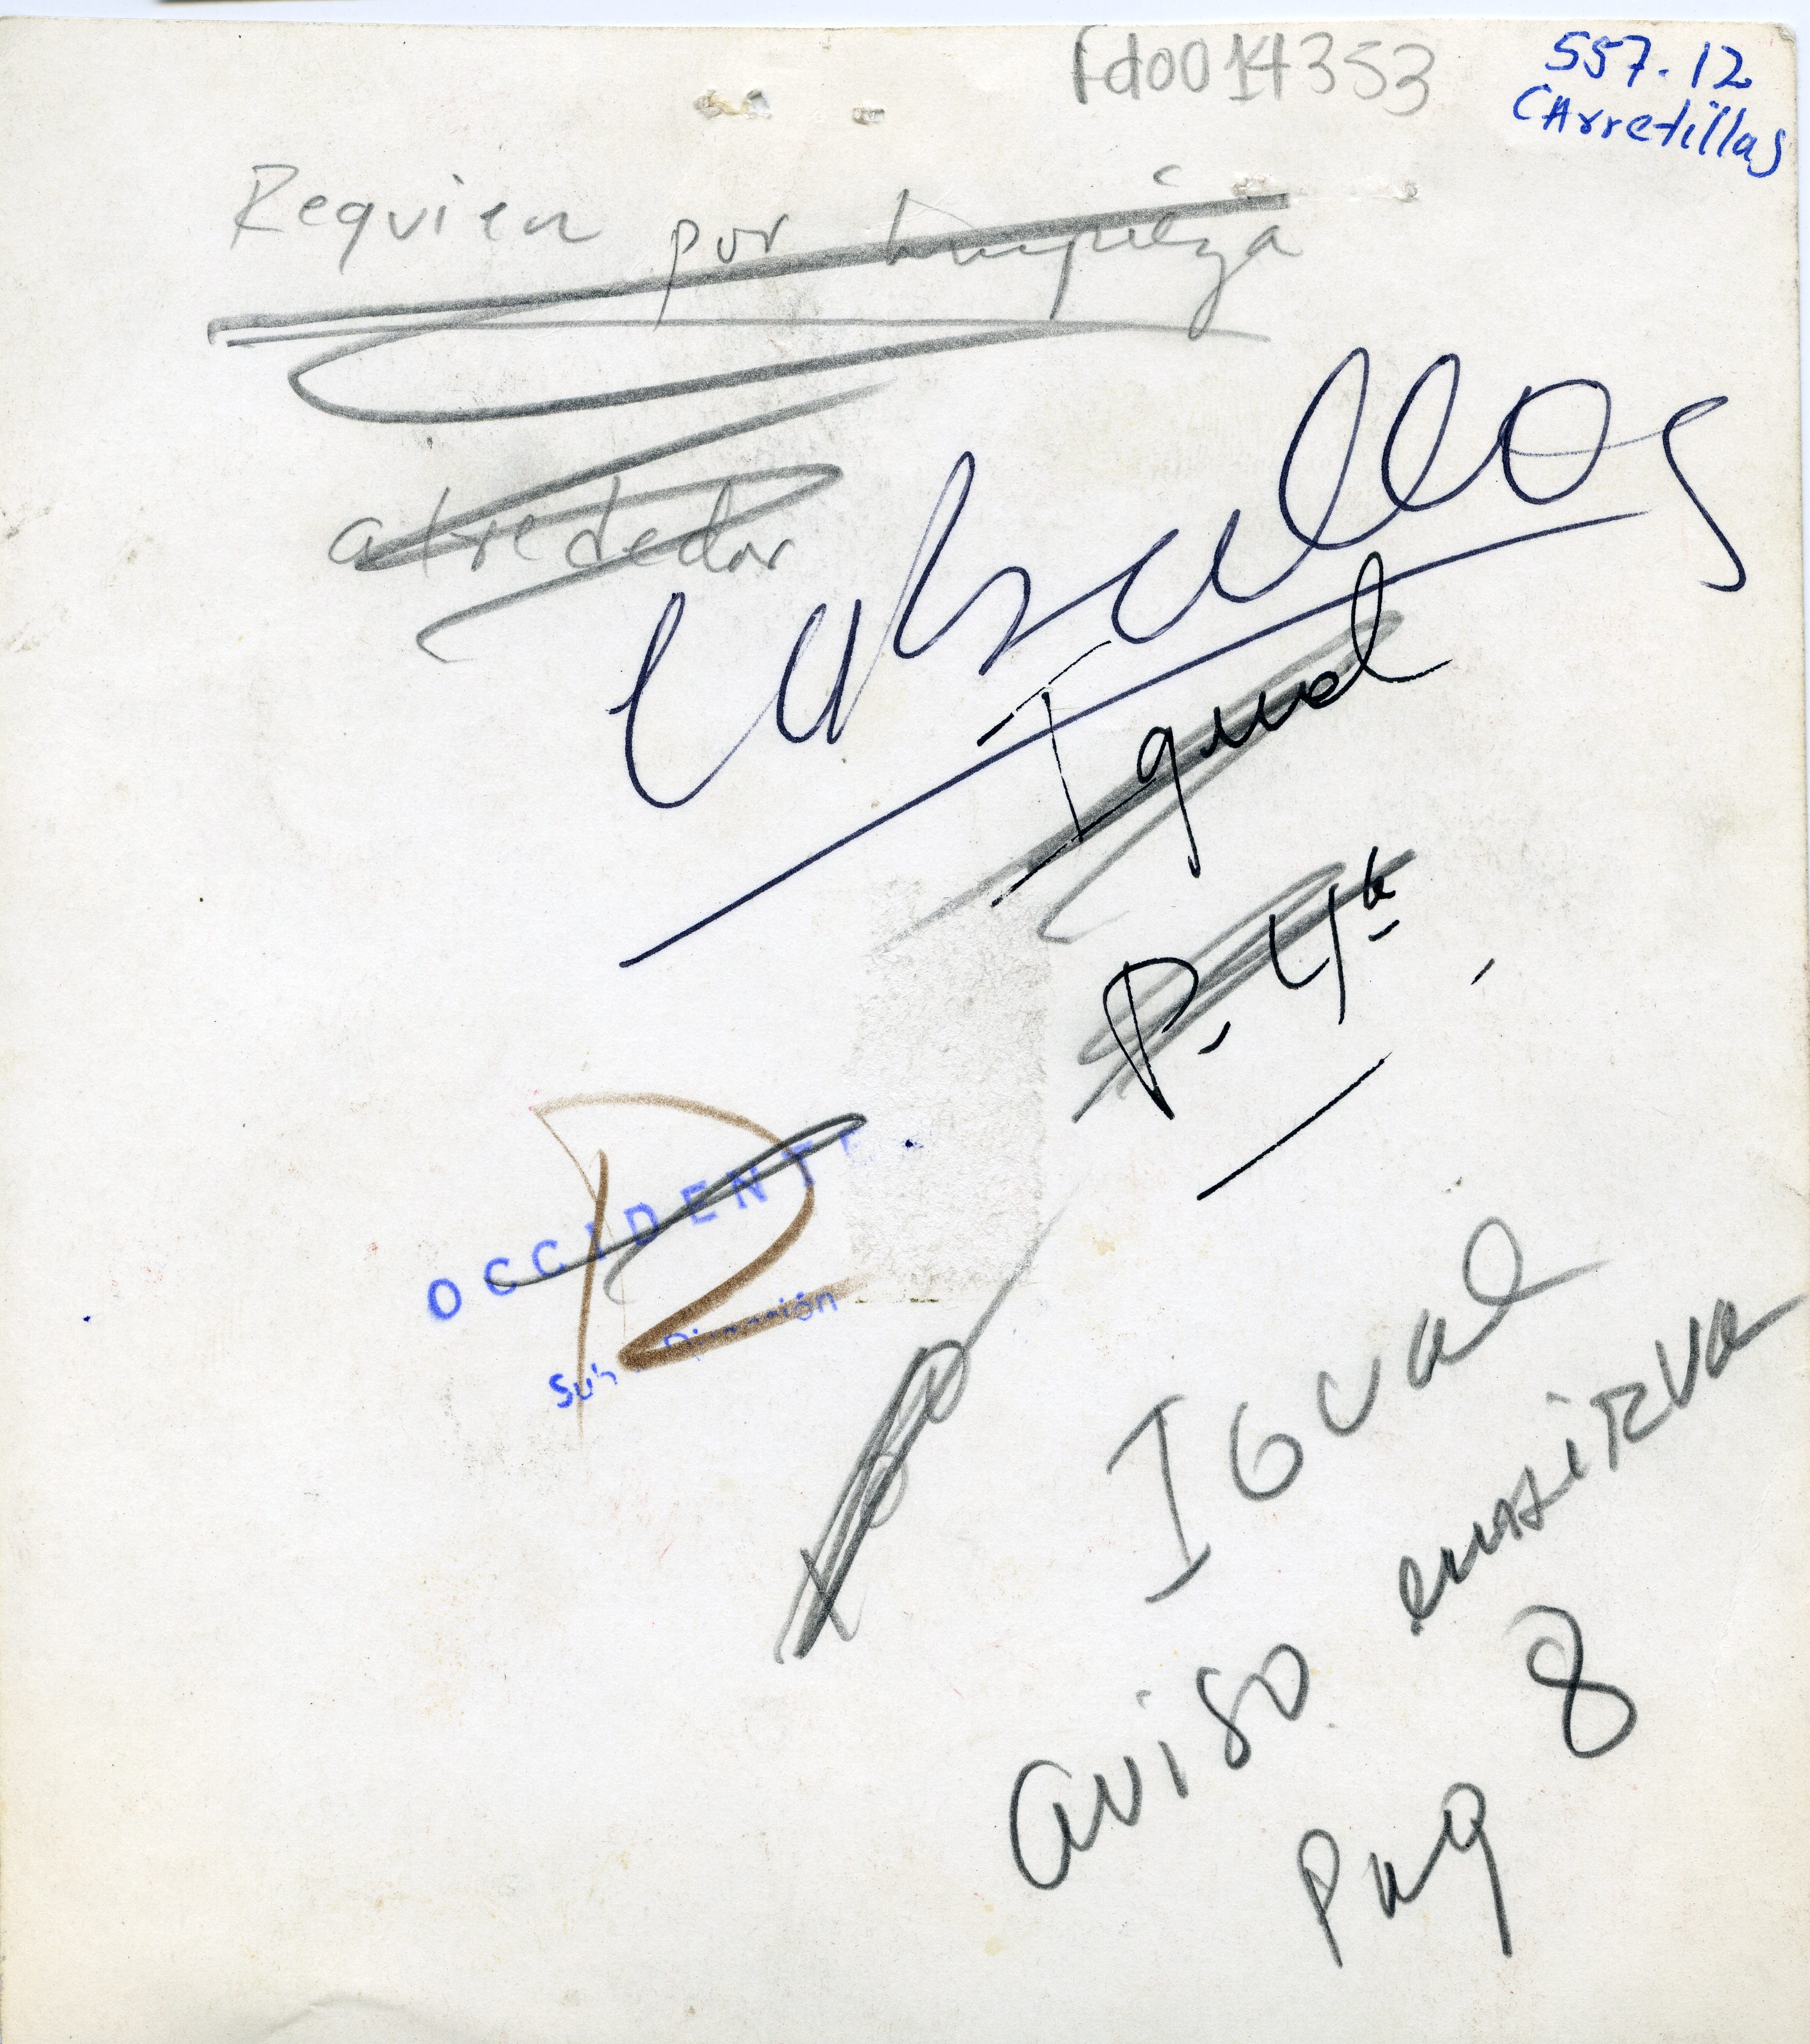 fdo014353
557.12
CArretillas
Requien por limpieza
alrededor
Caballos
Igual
P. 4ta
OCCIDENTE
Sub Dirección
Igual
aviso
Pag 8